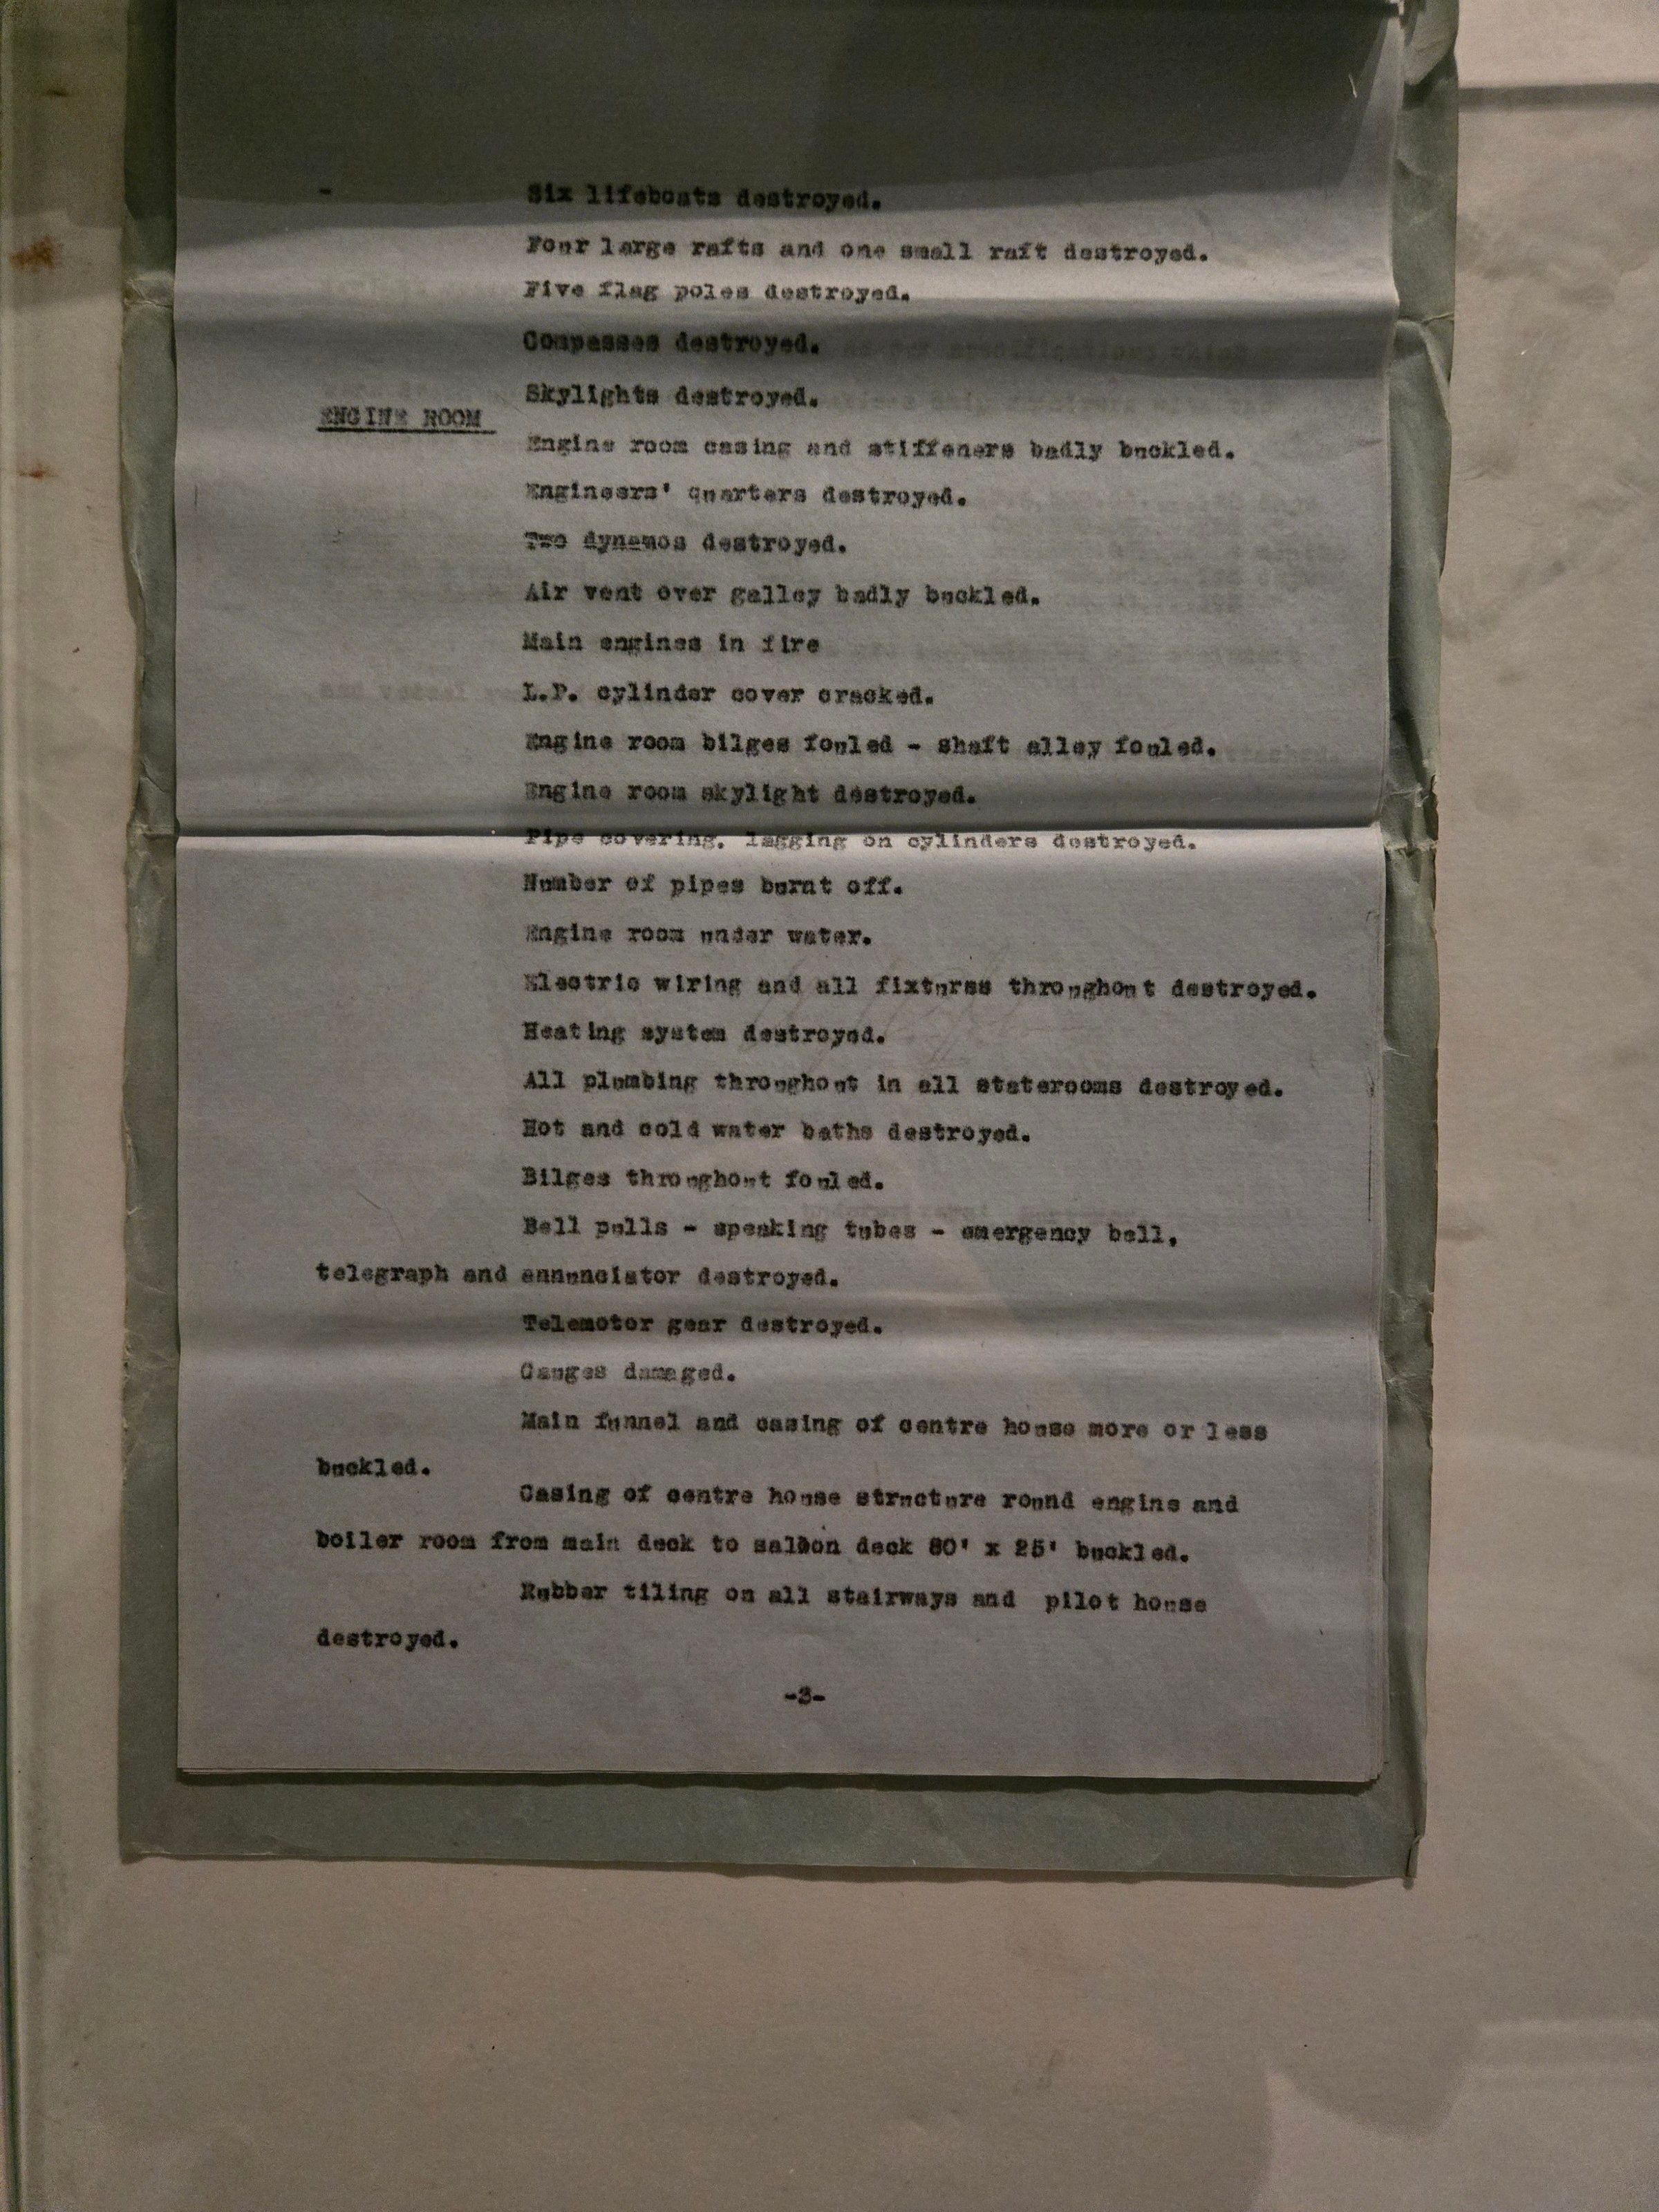 Six lifeboats destroyed.
Four large rafts and one small raft destroyed.
Five flag poles destroyed.
Compasses destroyed.
Skylights destroyed.
ENGINE ROOM
Engine room casing and stiffeners badly buckled.
Engineers' quarters destroyed.
Two dynamos destroyed.
Air vent over galley badly buckled.
Main engines in fire
L.P. cylinder cover cracked.
Engine room bilges fouled - shaft alley fouled.
Engine room skylight destroyed.
Pipe covering, lagging on cylinders destroyed.
Number of pipes burnt off.
Engine room under water.
Electric wiring and all fixtures throughout destroyed.
Heating system destroyed.
All plumbing throughout in all staterooms destroyed.
Hot and cold water baths destroyed.
Bilges throughout fouled.
Bell pulls - speaking tubes - emergency bell,
telegraph and annunciator destroyed.
Telemotor gear destroyed.
Gauges damaged.
Main funnel and casing of centre house more or less
buckled.
Casing of centre house structure round engine and
boiler room from main deck to saloon deck 80' x 25' buckled.
Rubber tiling on all stairways and pilot house
destroyed.
-3-